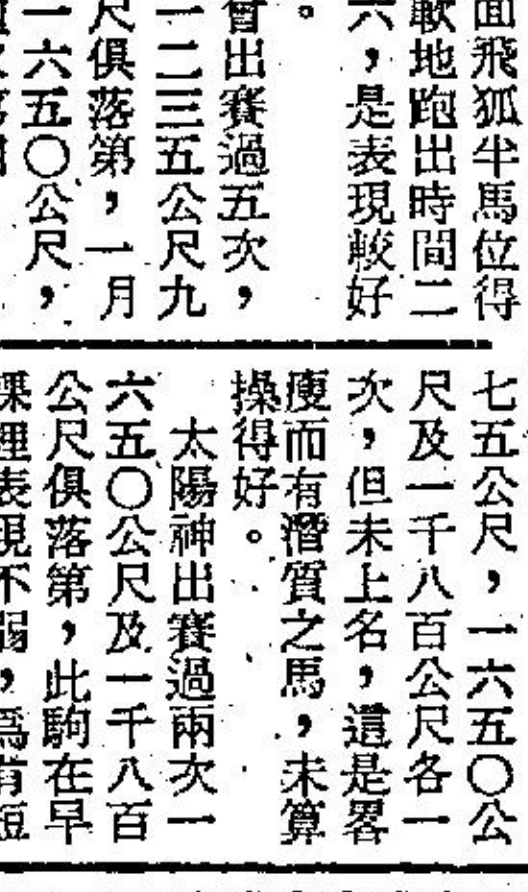 面飛狐半馬位得
歟地跑出時間二
六，是表現較好
。
會出賽過五次，
一二三五公尺九
尺俱落第，一月
一六五〇公尺，
七五公尺，一六五〇公
尺及一千八百公尺各一
次，但未上名，這是畧
瘦而有潛質之馬，未算
操得好。
太陽神出賽過兩次一
六五〇公尺及一千八百
公尺俱落第，此駒在早
課裡表現不弱，爲有短